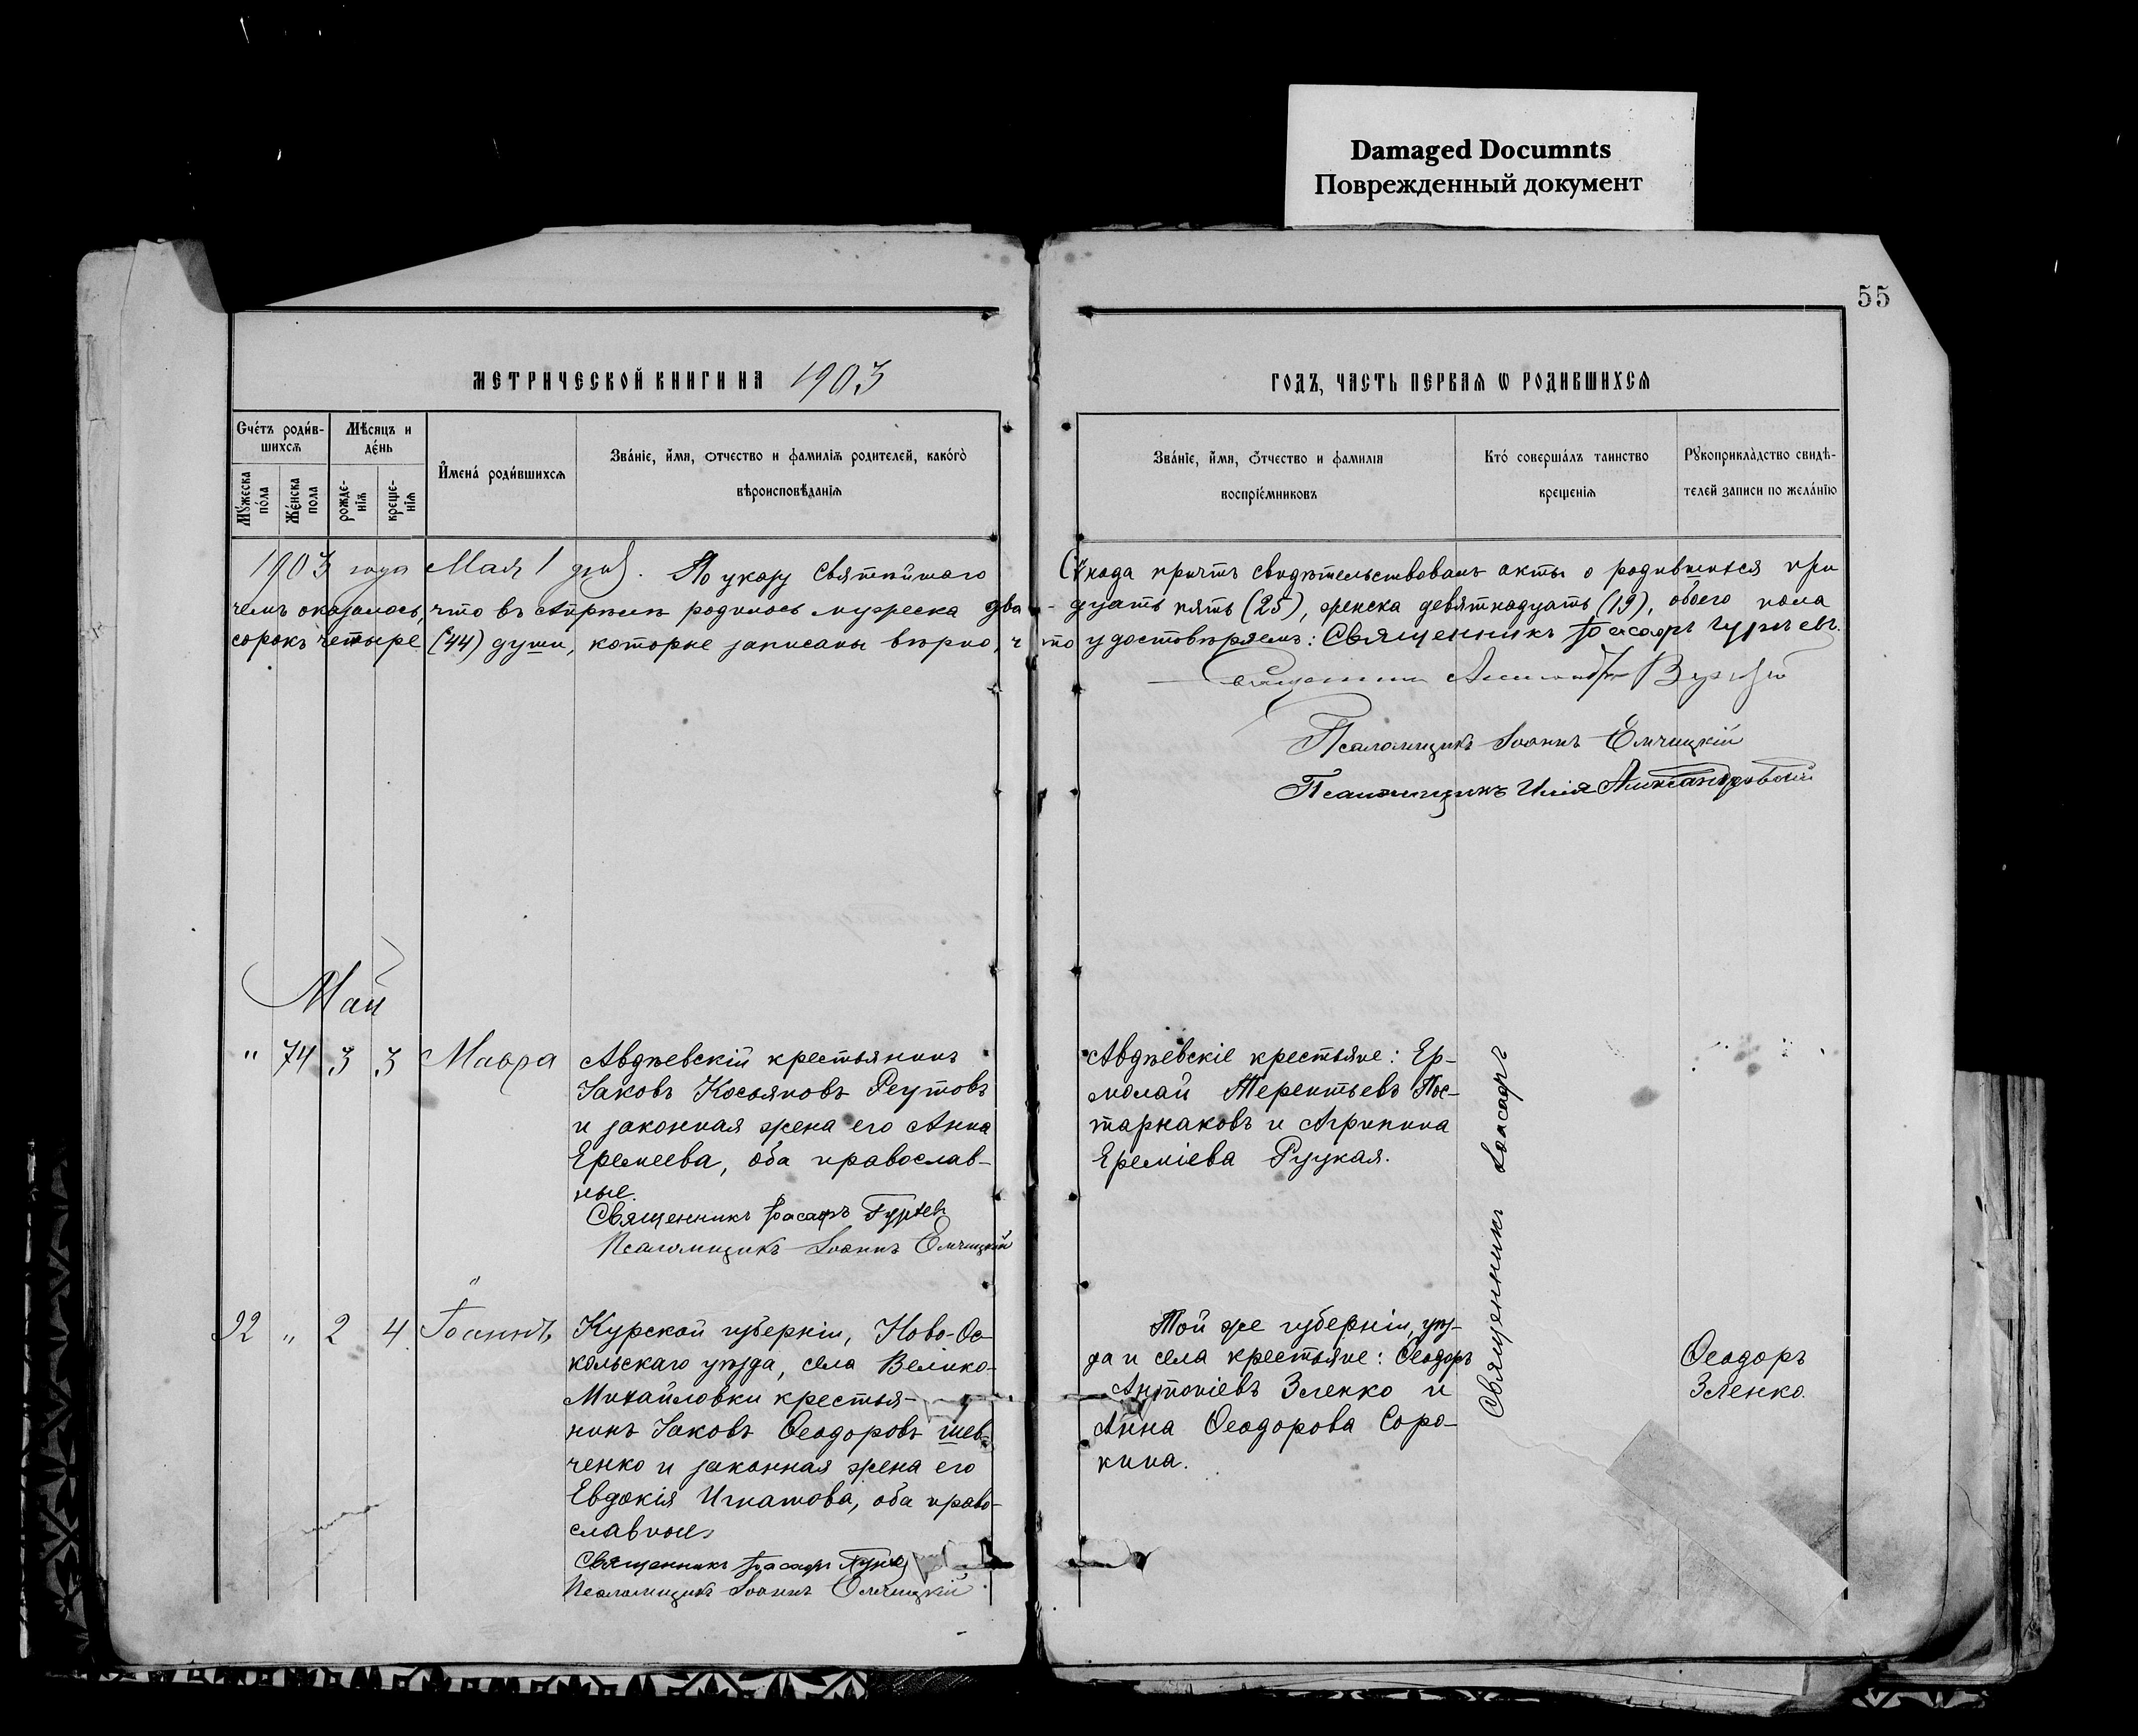 Damaged Documnts
Поврежденный документ
55
МЕТРИЧЕСКОЙ КНИГИ НА 1903
ГОДЪ, ЧАСТЬ ПЕРВАѦ Ѡ РОДИВШИХСѦ
Счéтъ роди́в-
шихсѧ
Мѣсяцъ и
дéнь
Мꙋ́жеска
по́ла
Жéнска
пола
рожде-
нїѧ
креще-
нїѧ
И҆мена̀ роди́вшихсѧ
Зва́нїе, и҆́мя, ѻтчество и фамилїѧ родителей, како́гѡ̀
вѣроисповѣ́данїѧ
Зва́нїе, и҆́мя, ѻ҆́тчество и фамилїѧ
воспрїе́мниковъ
Кто́ соверша́лъ таинство
крещенїѧ
Рꙋкоприкла̀дство свидѣ́-
телей записи по жела́нїю
1903 года Мая 1 дня. По указу Святѣйшаго Сѵнода причтъ свидѣтельствовалъ акты о родившихся при
чемъ оказалось, что въ Апрѣлѣ родилось мужеска два- дцать пять (25), женска девятнадцать (19), обоего пола
сорокъ четыре (44) души, которые записаны вѣрно, что удостовѣряемъ: Священникъ Іоасафъ Гурьевъ.
Псаломщикъ Іоаннъ Емчицкій
Псаломщикъ Илія Александровскій
Май
" 74 3 3 Мавра
Авдѣевскій крестьянинъ
Іаковъ Косьяновъ Реутовъ
и законная жена его Анна
Еремеева, оба православ-
ные.
Священникъ Іоасафъ Гурьев
Псаломщикъ Іоаннъ Емчицкій
Авдѣевскіе крестьяне: Ер-
молай Терентьевъ Пос-
тарнаковъ и Агрипина
Ереміева Руцкая.
Священникъ Іоасафъ
92 " 2 4 Іоаннъ
Курской губерніи, Ново-Ос-
кольскаго уѣзда, села Велико-
Михайловки крестья-
нинъ Іаковъ Ѳеодоровъ Шев-
ченко и законная жена его
Евдокія Игнатова, оба право-
славные
Священникъ Іоасафъ Гурье
Псаломщикъ Іоаннъ Емчицкій
Той же губерніи, уѣз-
да и села крестьяне: Ѳеодоръ
Антоніевъ Зленко и
Анна Ѳеодорова Соро-
кина.
Ѳеодоръ
Зленко.